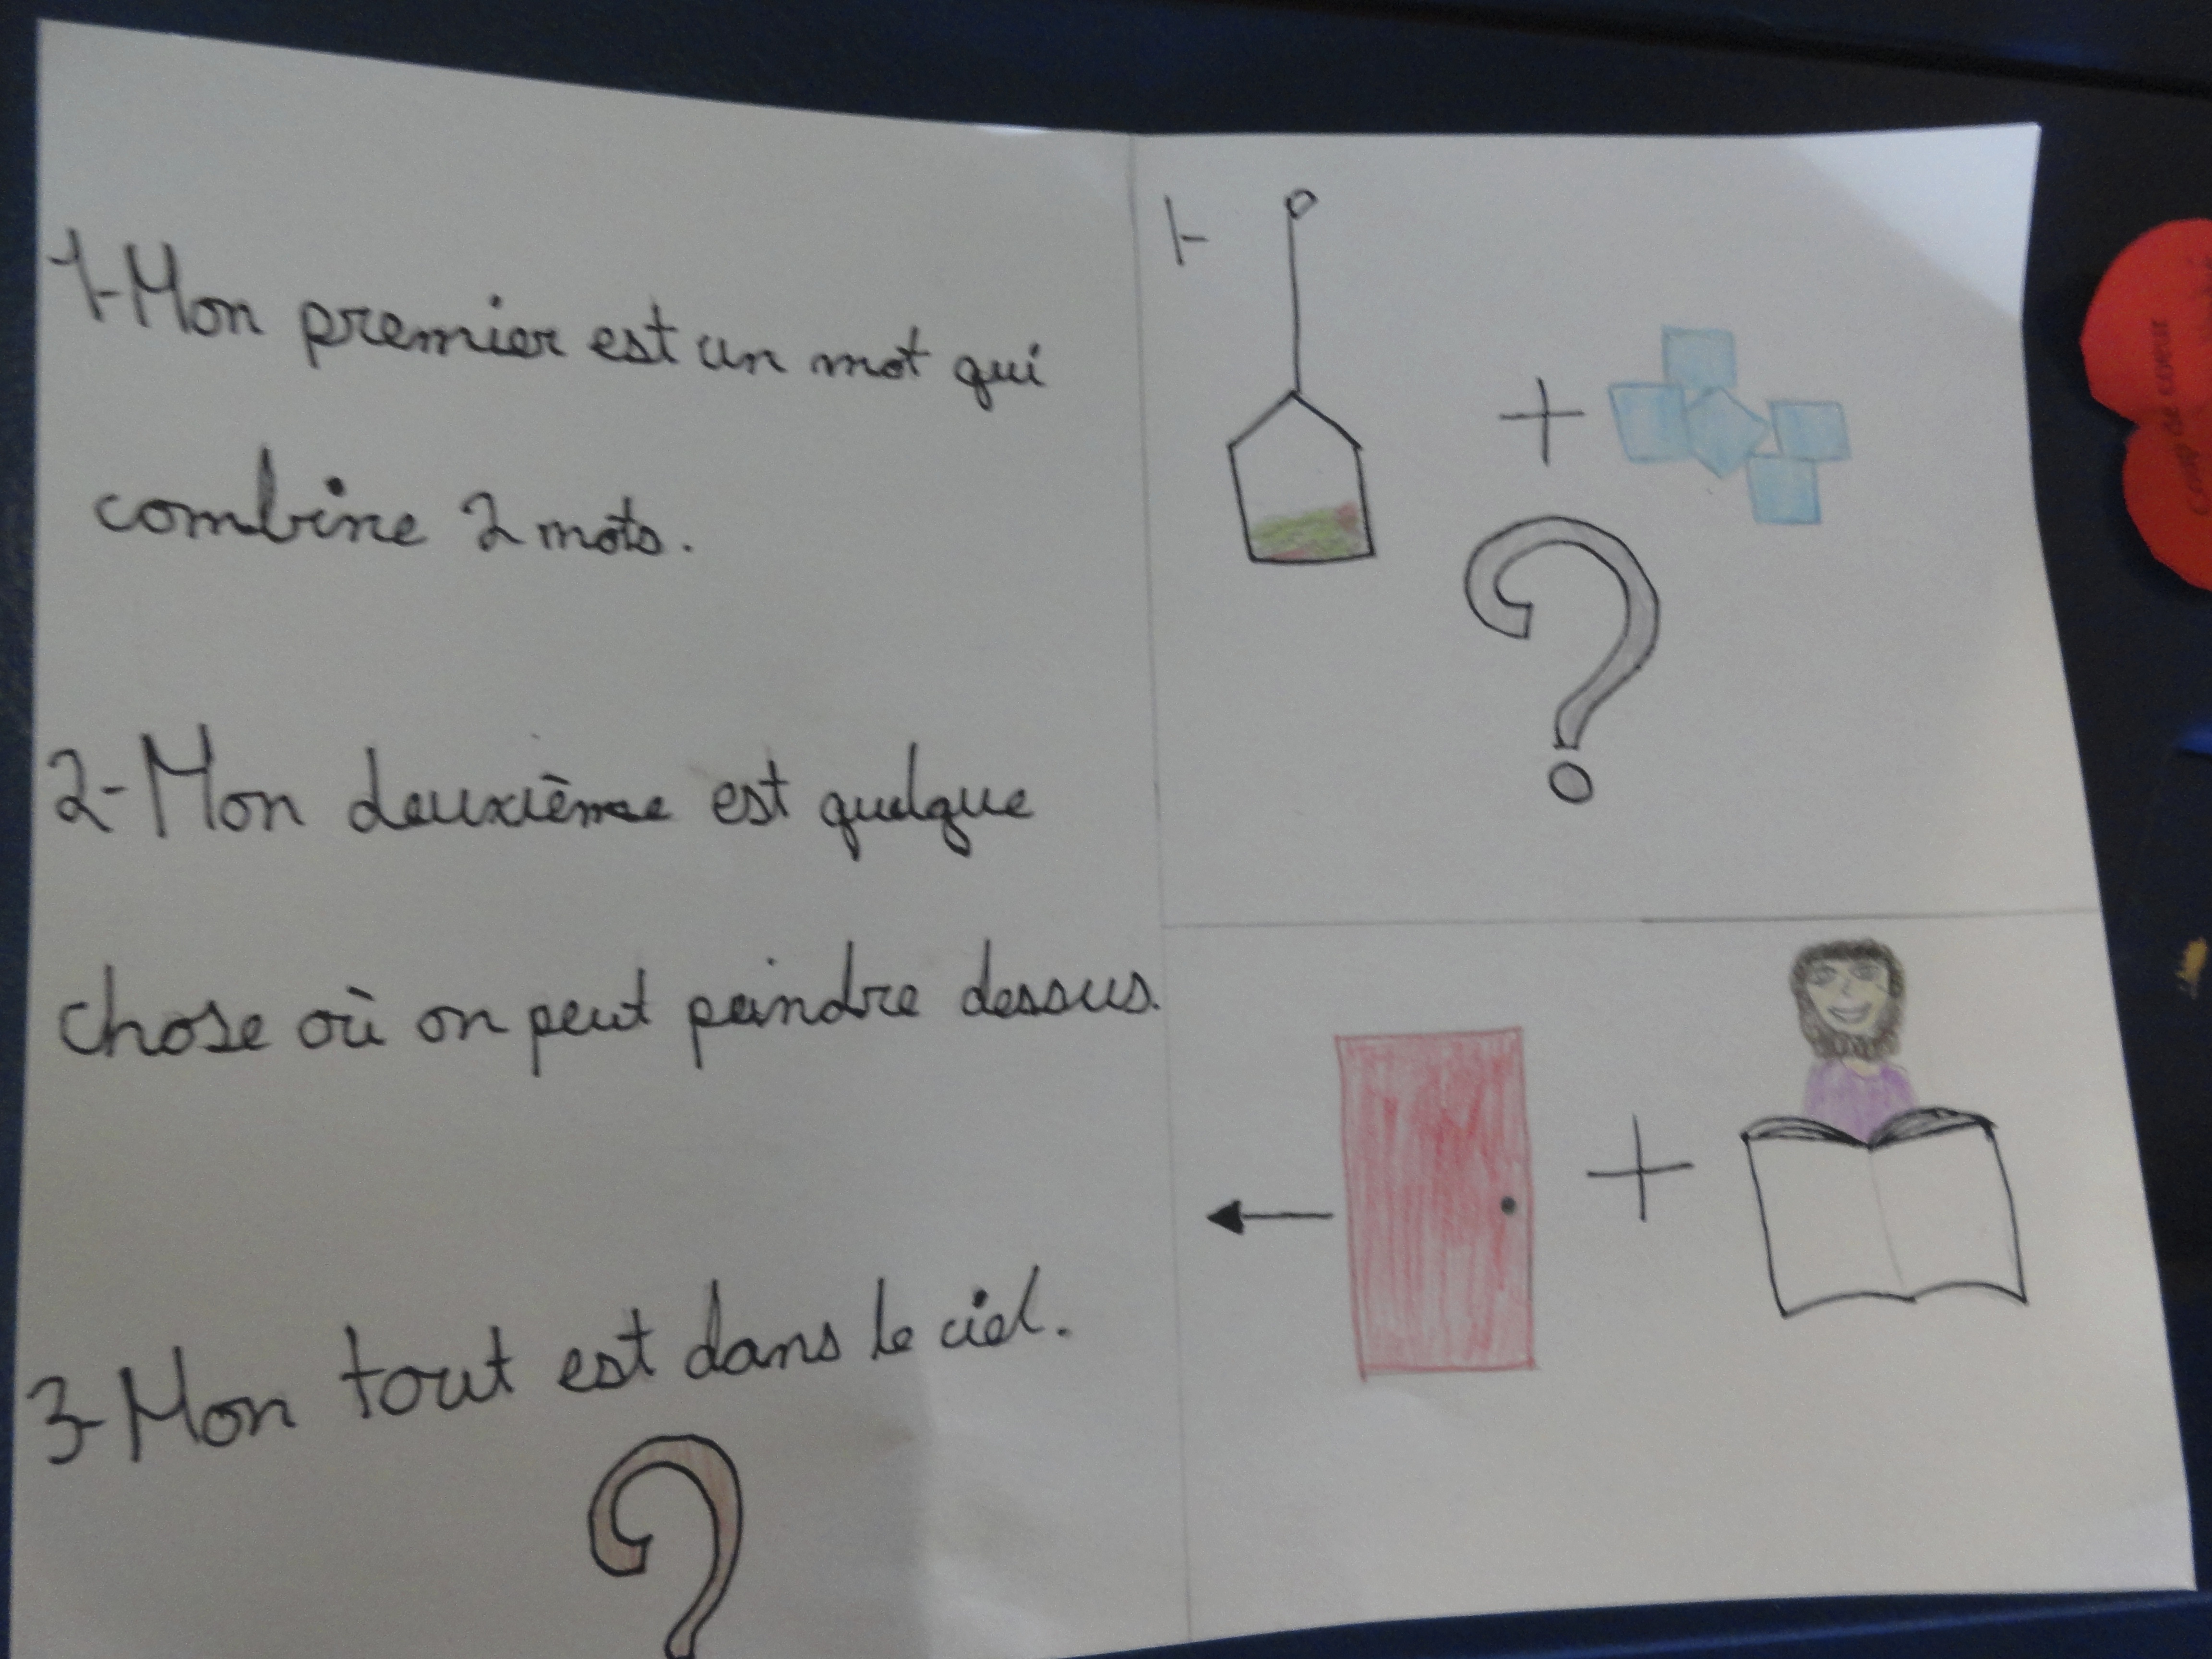 1-Mon premier est un mot qui
combine 2 mots.
2-Mon deuxième est quelque
chose où on peut peindre dessus.
3-Mon tout est dans le ciel.
?
1-
+
?
+